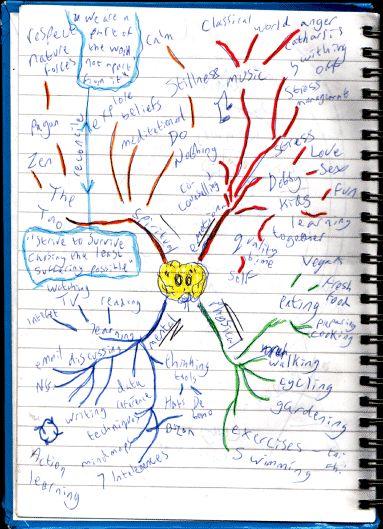 "we are a
part of
the world
not apart
from it"
respect
nature
forces
Calm
Classical
world
anger
catharsis
writing
off
Stillness
music
Stress
management
explore
beliefs
meditational
Do
Nothing
Pagan
Zen
The
Tao
reconcile
spiritual
emotional
controlling
stress
Love
Sex
Debby
Fun
Kids
learning
together
quality
time
self
"I strive to survive
causing the least
suffering possible"
watching
TV
reading
internet
learning
email
discussing
NGs
mental
physical
thinking
tools
data
writing
techniques
Hats
De
Bono
Buzan
mindmaps
7 Intelligences
Action
learning
Vegan
Fresh
food
eating
preparing
cooking
walking
cycling
gardening
exercises
tai
chi
swimming